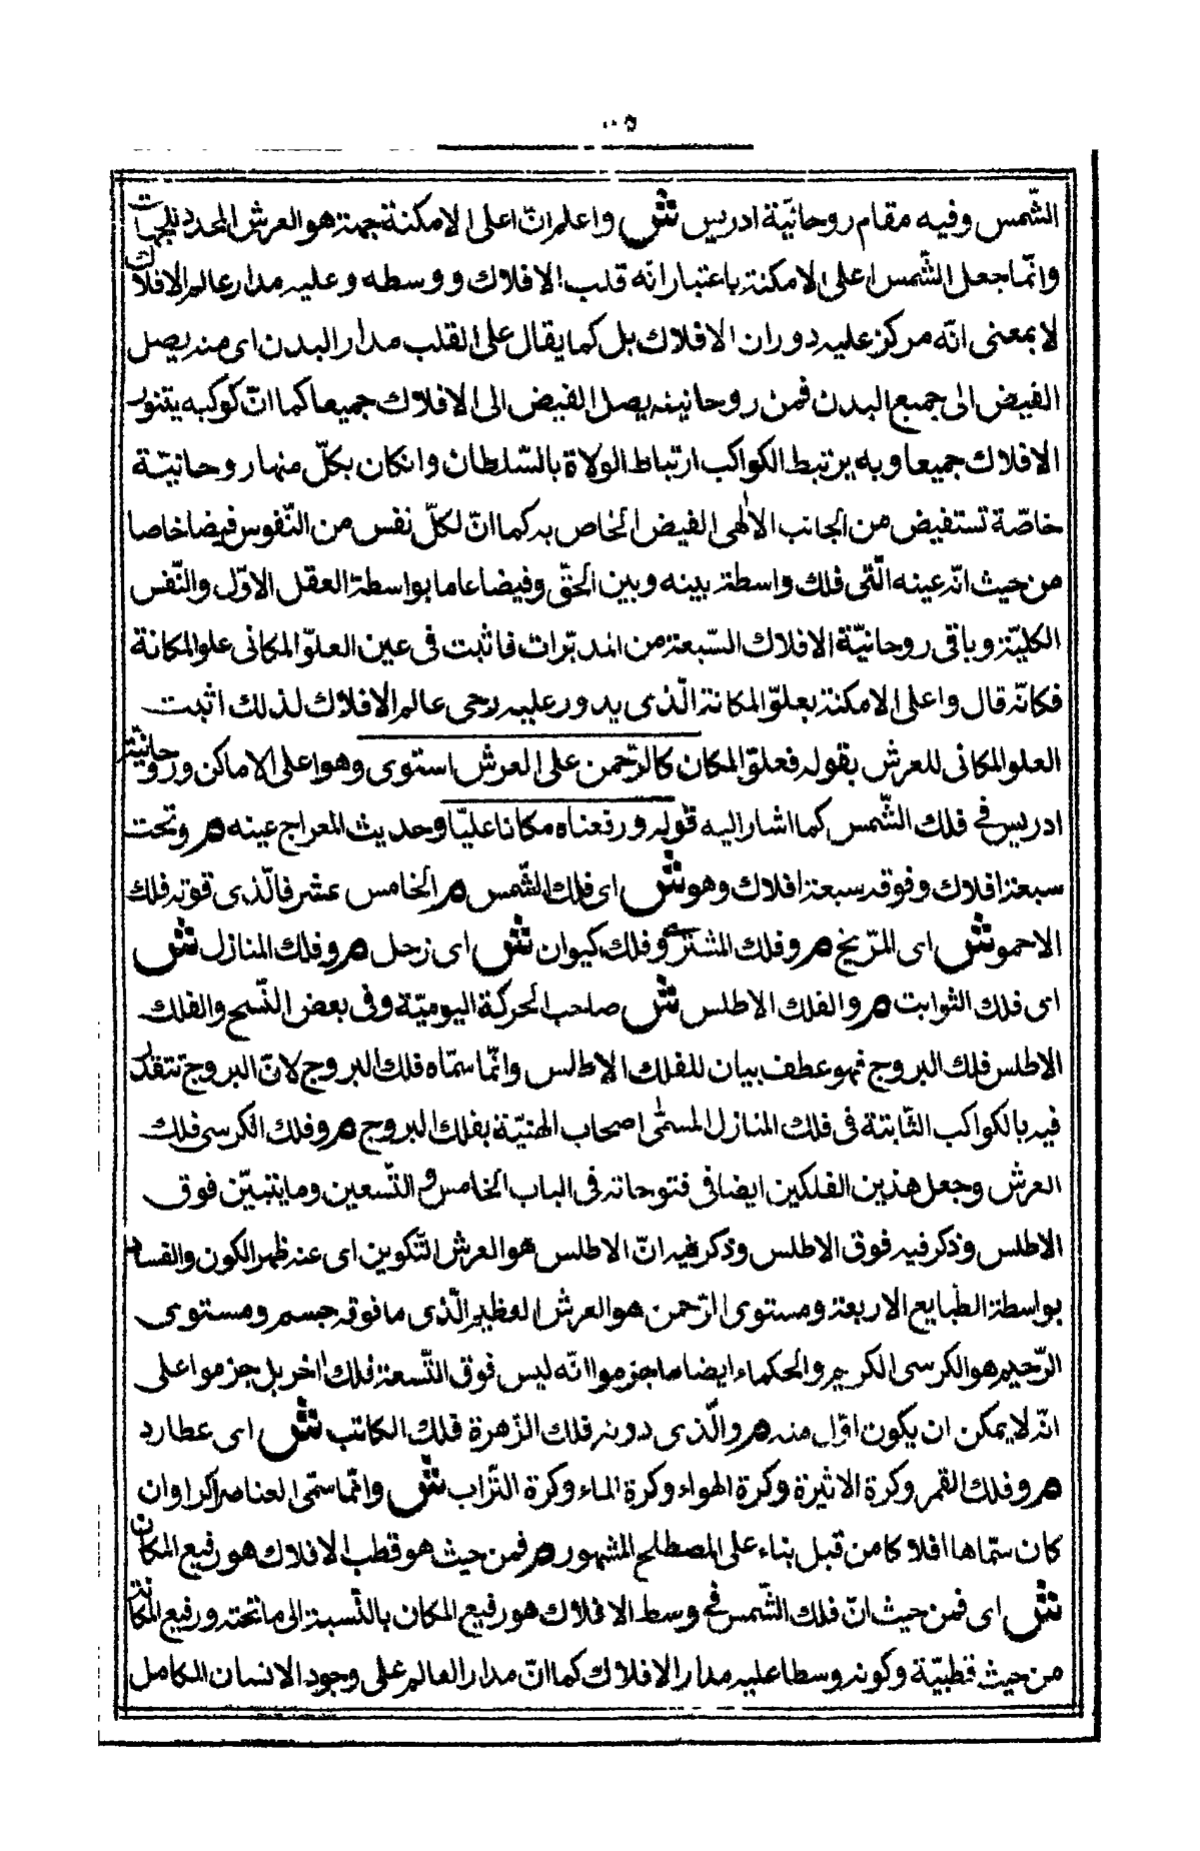 ٥٠٠
الشّمس وفيه مقام روحانيّة ادريس ش واعلم انّ اعلى الامكنة جهة هو العرش المحدد للجهات
وانّما جعل الشّمس اعلى الامكنة باعتبار انّه قلب الافلاك ووسطه وعليه مدار عالم الافلاك
لا بمعنى انّه مركز عليه دوران الافلاك بل كما يقال على القلب مدار البدن اى منه يصل
الفيض الى جميع البدن فمن روحانيته يصل الفيض الى الافلاك جميعا كما انّ كوكبه يتنور
الافلاك جميعا وبه يرتبط الكواكب ارتباط الولاة بالسّلطان وانكان بكلّ منها روحانيّة
خاصّة تستفيض من الجانب الالٰهى الفيض الخاص به كما انّ لكلّ نفس من النّفوس فيضا خاصا
من حيث انّه عينه الّتى فلك واسطة بينه وبين الحقّ وفيضا عاما بواسطة العقل الاوّل والنّفس
الكليّة وباقى روحانيّة الافلاك السّبعة من المدبّرات فاثبت فى عين العلوّ المكانى علو المكانة
فكانّه قال واعلى الامكنة بعلوّ المكانة الّذى يدور عليه رحى عالم الافلاك لذلك اثبت
العلو المكانى للعرش بقوله فعلوّ المكان كالرّحمن على العرش استوى وهو اعلى الاماكن وروحانيّة
ادريس فى فلك الشّمس كما اشار اليه قوله ورفعناه مكانا عليّا وحديث المعراج عينه م وتحت
سبعة افلاك وفوقه سبعة افلاك وهو ش اى فلك الشّمس م الخامس عشر فالّذى فوقه فلك
الاحمر ش اى المرّيخ م وفلك المشترى وفلك كيوان ش اى زحل م وفلك المنازل ش
اى فلك الثوابت م والفلك الاطلس ش صاحب الحركة اليوميّة وفى بعض النّسخ والفلك
الاطلس فلك البروج فهو عطف بيان للفلك الاطلس وانّما سمّاه فلك البروج لانّ البروج تتقدر
فيه بالكواكب الثّابتة فى فلك المنازل المسمّى اصحاب الهيئة بفلك البروج م وفلك الكرسى فلك
العرش وجعل هذين الفلكين ايضا فى فتوحاته فى الباب الخامس والتّسعين ومايتبيّن فوق
الاطلس وذكر فيه فوق الاطلس وذكر فيه انّ الاطلس هو العرش التّكوين اى عنه ظهر الكون والفساد
بواسطة الطبايع الاربعة ومستوى الرّحمن هو العرش العظيم الّذى ما فوقه جسم ومستوى
الرّحيم هو الكرسى الكريم والحكماء ايضا ما جزموا انّه ليس فوق التّسعة فلك اخر بل جزموا على
انّه لا يمكن ان يكون اوّل منه م والّذى دونه فلك الزّهرة فلك الكاتب ش اى عطارد
م وفلك القمر وكرة الاثيرة وكرة الهواء وكرة الماء وكرة التّراب ش وانّما سمّى العناصر اكرا وان
كان سمّاها افلاكا من قبل بناء على المصطلح المشهور م فمن حيث هو قطب الافلاك هو رفيع المكان
ش اى فمن حيث انّ فلك الشّمس فى وسط الافلاك هو رفيع المكان بالنّسبة الى ما تحته ورفيع المكانة
من حيث قطبيّة وكونه وسطا عليه مدار الافلاك كما انّ مدار العالم على وجود الانسان الكامل